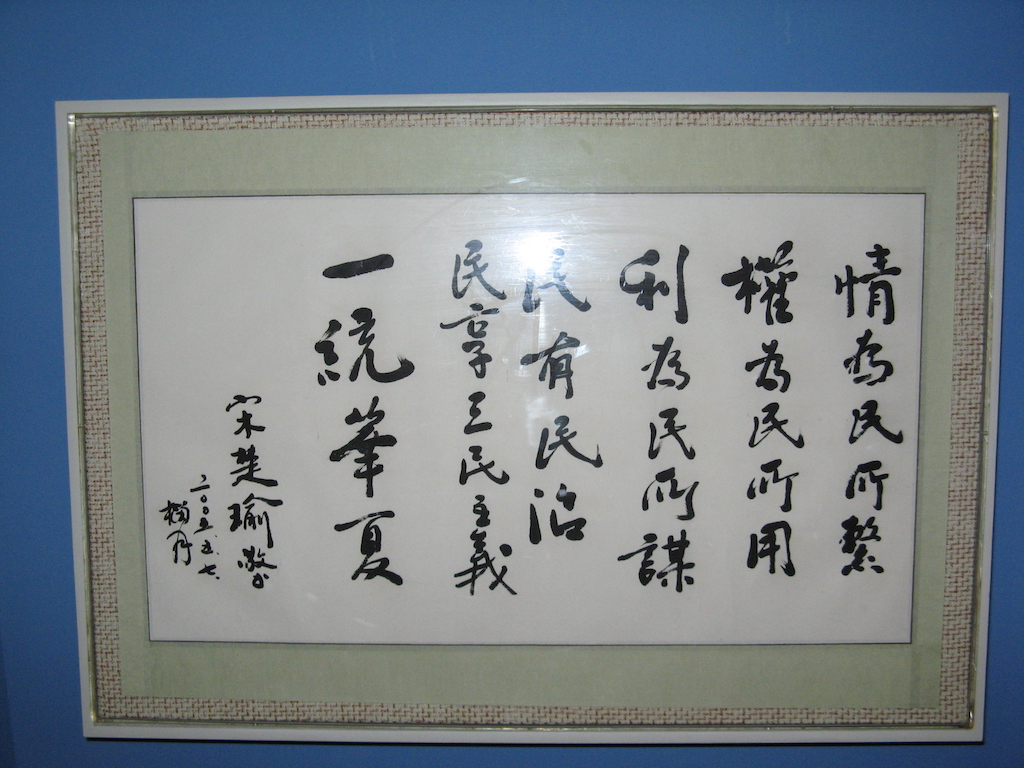 情為民所繫
權為民所用
利為民所謀
民有民治
民享三民主義
一統華夏
宋楚瑜敬
二〇〇五.五.七.